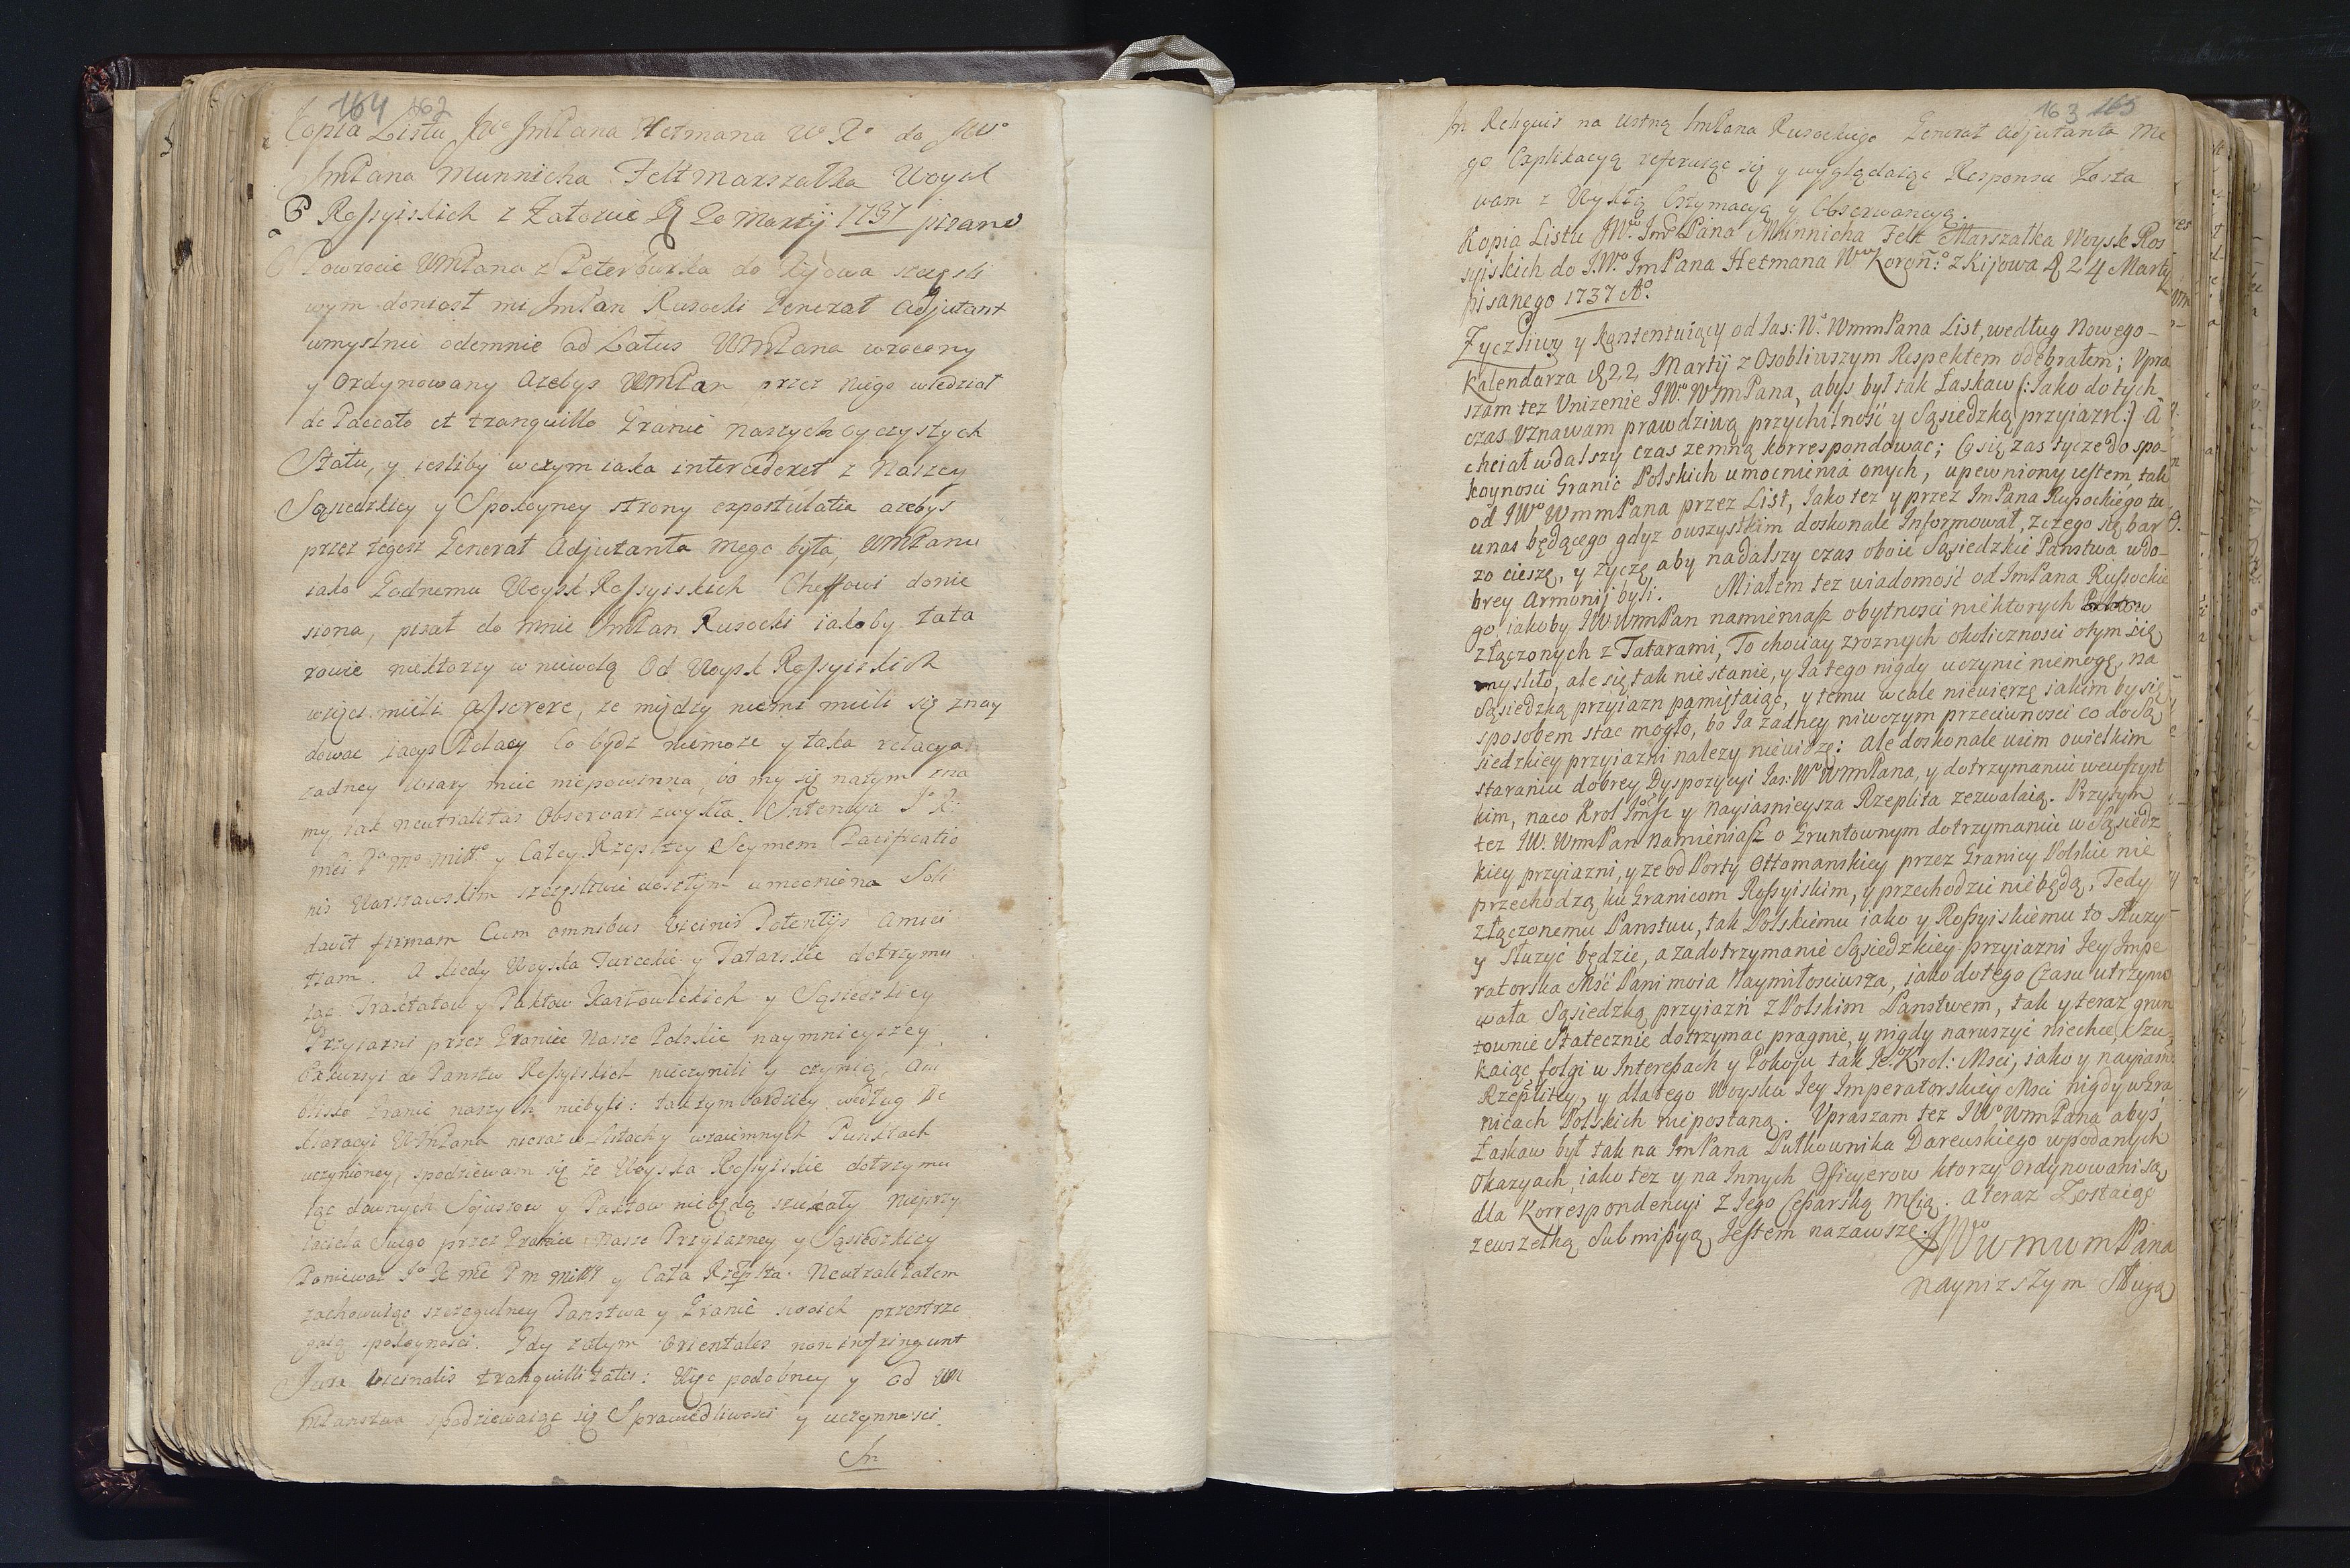 164 162
Copia Listu JWo JmPana Hetmana W Ko do JWo
JmPana Munnicha Feltmarszałka Woysk
Rossyiskich z Załoziec D 20 Martij 1737 pisane
O Powrocie WMPana z Peterburka do Kijowa szczęsli
wym doniosł mi JmPan Rusocki Generał Adjutant
umyslnie odemnie ad Latus WMPana wrocony
y Ordynowany azebys WMPan przez niego wiedział
de Paccato et tranquillo Granic naszych oyczystych
Statu, y iesliby wczym iaka intercederet z Naszey
Sąsiedzkiey y Spokoyney strony expostulatia azebys
przez tegosz Generał Adjutanta mego była, WMPanu
iako Godnemu Woysk Rossyiskich Cheffowi donie
siona, pisał do mnie JmPan Rusocki iakoby Tata
rowie niektorzy w niewolą Od Woysk Rossyiskich
wzięci mieli asserere, ze między niemi mieli się znay
dować iacys Polacy Co bydz niemoze y taka relacya
zadney wiary miec niepowinna, bo my się natym zna
my, iak neutralitas Observari zwykła. Intencya Jo K:
Mći Po Mo Miłło y Całey Rzepltey Seymem Pacificatio
nis Warszawskim szczęsliwie doszłym umocniona Soli
davit firmam Cum omnibus vicinis Potentijs Amici
tiam. A kiedy Woyska Tureckie y Tatarskie dotrzymu
iąc Tractatow y Paktow Karłowickich y Sąsiedzkiey
Przyiazni przez Granice Nasze Polskie naymnieyszey
Exkursyi do Panstw Rossyiskich nieczynili y czynią, Ani
blisko Granic naszych niebyli: tak tym bardziey według De
klaracyi WMPana nieraz w Listach y wzaiemnych Punktach
uczynioney, spodziewam się ze Woyska Rossyiskie dotrzymu
iąc dawnych Sojuszow y Paktow niebędą szukały Nieprzy
iaciela swego przez Granice Nasze Przyiazney y Sąsiedzkiey
Poniewaz Jo K Mć P m Miłł y Cała Rzeplta Neutralitatem
zachowuiąc szczegulney Panstwa y Granic swoich przestrze
gaią spokoynosci. Gdy zatym Orientales non infringunt
Jura vicinalis tranquillitatis: Więc podobney y od WM
MPanstwa spodziewaiąc się Sprawiedliwosci y uczynnosci.
In
163 165
In Reliquis na ustną JmPana Rusockiego Generał Adjutanta Me
go Explikacyą referuiąc się y wyglądaiąc Responsu Zosta
wam z Wysłą Estymacyą y Obserwancyą.
Kopia Listu JWo Jmć Pana Munnicha Felt Marszałka Woysk Ros
syiskich do J.Wo JmPana Hetmana Wo Koron: z Kijowa D 24 Martij
pisanego 1737 Ao
Zyczliwy y kontentuiący od Jas: Wo WmmPana List, według Nowego
Kalendarza D 22 Martij z Osobliwszym Respektem odebrałem; Upra
szam tez Unizenie JWo WmPana, abys był tak łaskaw (: iako do tych
czas Uznawam prawdziwą przychilność y Sąsiedzką przyiazn :) A
chciał wdalszy czas zemną korrespondowac; Co się zas tycze do spo-
koynosci Granic Polskich umocnienia onych, upewniony iestem, tak
od JWo WmmPana przez List, iako tez y przez JmPana Rusockiego tu
unas będącego gdyz owszystkim doskonale Informował, zczego się bar
zo cieszę, y zyczę aby nadalszy czas oboie Sąsiedzkie Panstwa wdo-
brey Armonij byli. Miałem tez wiadomość od JmPana Russockie
go iakoby JW WmPan namieniasz obytnosci niektorych
złączonych z Tatarami, To chociay zroznych okolicznosci otym się
mysliło, ale się tak niestanie, y Ja tego nigdy uczynic niemogę, na
Sąsiedzką przyiazn pamiętaiąc, y temu wcale niewierzę iakim by się
sposobem stac mogło, bo Ja zadney niwczym przeciwnosci co do Są
siedzkiey przyiazni nalezy niewidzę: Ale doskonale wiem owielkim
staraniu dobrey Dyspozycyi Jas: Wo WmPana, y dotrzymaniu wewszyst
kim, naco Krol Jmść y Nayiasnieysza Rzeplita zezwalaią. Przytym
tez JW. WmPan Namieniasz o Gruntownym dotrzymaniu w Sąsiedz
kiey przyiazni, y ze od Porty Ottomanskiey przez Granicy Polskie nie
przechodzą ku Granicom Rossyiskim, y przechodzic niebędą, Tedy
złączonemu Panstwu, tak Polskiemu iako y Rossyiskiemu to słuzy
y słuzyć będzie, a zadotrzymanie Sąsiedzkiey przyiazni Jey Impe
ratorska Mść Pani moia Naymiłosciwsza, iako dotego Czasu utrzymo
wała Sąsiedzką przyiaźń z Polskim Panstwem, tak y teraz grun
townie Statecznie dotrzymac pragnie, y nigdy naruszyć niechce, Szu
kaiąc folgi w Interesach y Pokoju tak Je: Krol: Msci, iako y nayiasn
Rzeplitey, y dlatego Woyska Jey Imperatorskiey Msci nigdy w Gra
nicach Polskich niepostaną. Upraszam tez JWo WmPana abys
łaskaw był tak na JmPana Pułkownika Darewskiego wpodanych
Okazyach, iako tez y na Innych Officyerow ktorzy Ordynowani są
dla Korrespondencyi z Jego Cesarską Mcią. A teraz Zostaiąc
zewszelką Submissyą Jestem nazawsze. JWo WMWMPana
Nayniższym Sługą